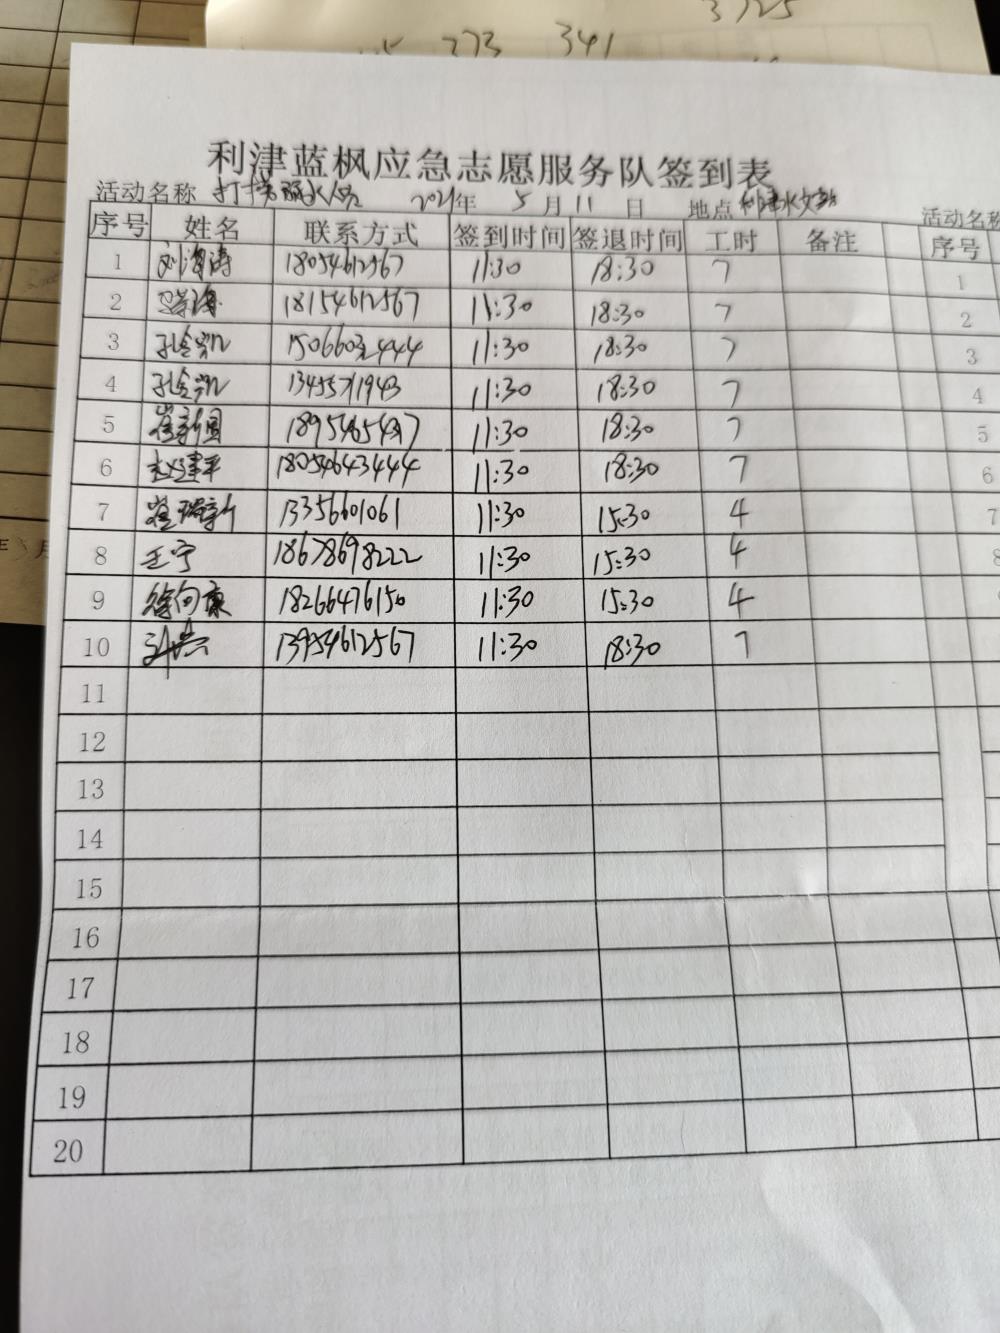 3725
273 341
利津蓝枫应急志愿服务队签到表
活动名称 打捞溺水人员 2021年 5月11日 地点 利津水文站 活动名称
序号 姓名 联系方式 签到时间 签退时间 工时 备注 序号
1 刘海涛 18054612567 11:30 18:30 7 1
2 18154612567 11:30 18:30 7 2
3 孔令凯 15066032444 11:30 18:30 7 3
4 孔令凯 13455771943 11:30 18:30 7 4
5 崔新国 11:30 18:30 7 5
6 赵建平 18054643444 11:30 18:30 7 6
7 崔瑞新 13356601061 11:30 15:30 4 7
8 王宁 18678698222 11:30 15:30 4 8
9 徐向康 18266476150 11:30 15:30 4
10 13954612567 11:30 18:30 7
11
12
13
14
15
16
17
18
19
20